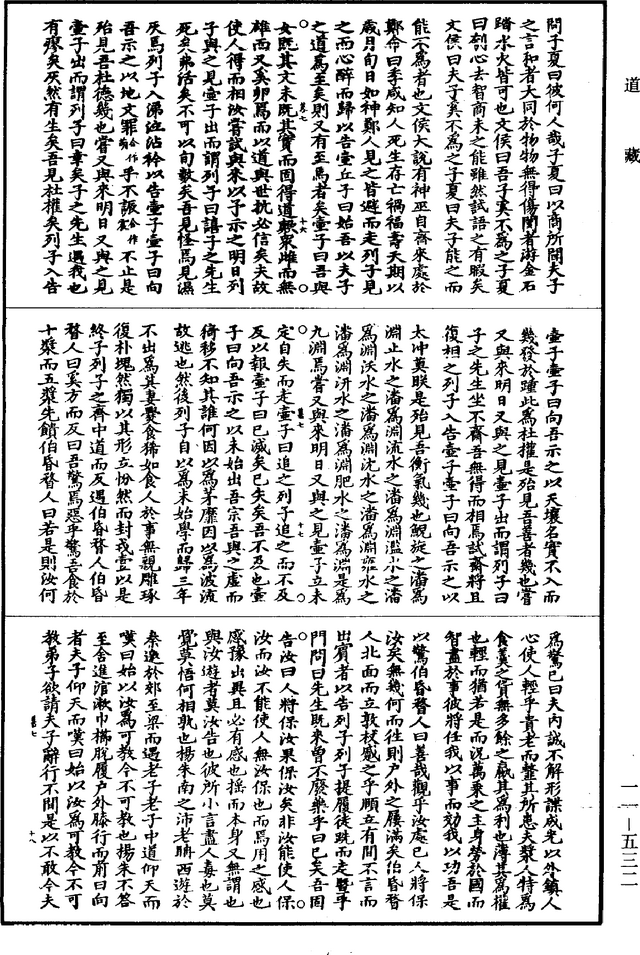 道藏
問子夏曰彼何人哉子夏曰以商所聞夫子
之言和者大同於物物無得傷閡者游金石
蹈水火皆可也文侯曰吾子奚不為之子夏
曰刳心去智商未之能雖然試語之有暇矣
文侯曰夫子奚不為之子夏曰夫子能之而
能不為者也文侯大說有神巫自齊來處於
鄭命曰季咸知人死生存亡禍福壽夭期以
歲月旬日如神鄭人見之皆避而走列子見
之而心醉而歸以告壺丘子曰始吾以夫子
之道為至矣則又有至焉者矣壺子曰吾與
卷七
十六
汝既其文未既其實而固得道歟眾雌而無
雄而又奚卵焉而以道與世抗必信矣夫故
使人得而相汝嘗試與來以予示之明日列
子與之見壺子出而謂列子曰譆子之先生
死矣弗活矣不可以旬數矣吾見怪焉見濕
灰焉列子入涕泣沾衿以告壺子壺子曰向
吾示之以地文罪乎不誫不止是
殆見吾杜德幾也嘗又與來明日又與之見
壺子出而謂列子曰幸矣子之先生遇我也
有瘳矣灰然有生矣吾見杜權矣列子入告
壺子壺子曰向吾示之以天壤名實不入而
幾發於踵此為杜權是殆見吾善者幾也嘗
又與來明日又與之見壺子出而謂列子曰
子之先生坐不齋吾無得而相焉試齋將且
復相之列子入告壺子壺子曰向吾示之以
太冲莫眹是殆見吾衡氣幾也鯢旋之潘為
淵止水之潘為淵流水之潘為淵濫水之潘
為淵沃水之潘為淵沈水之潘為淵雍水之
潘為淵汧水之潘為淵肥水之潘為淵是為
九淵焉嘗又與來明日又與之見壺子立未
卷七
十七
定自失而走壺子曰追之列子追之而不及
反以報壺子曰已滅矣已失矣吾不及也壺
子曰向吾示之以未始出吾宗吾與之虛而
猗移不知其誰何因以為茅靡因以為波流
故逃也然後列子自以為未始學而歸三年
不出為其妻爨食狶如食人於事無親雕琢
復朴塊然獨以其形立㤋然而封戎壹以是
終子列子之齊中道而反遇伯昏瞀人伯昏
瞀人曰奚方而反曰吾驚焉惡乎驚吾食於
十漿而五漿先饋伯昏瞀人曰若是則汝何
為驚已曰夫內誠不解形諜成光以外鎮人
心使人輕乎貴老而韲其所患夫漿人特為
食羹之貨無多餘之贏其為利也薄其為權
也輕而猶若是而況萬乘之主身勞於國而
智盡於事彼將任我以事而効我以功吾是
以驚伯昏瞀人曰善哉觀乎汝處已人將保
汝矣無幾何而往則戶外之屨滿矣伯昏瞀
人北面而立敦杖蹙之乎頤立有間不言而
出賓者以告列子列子提履徒跣而走暨乎
門問曰先生既來曾不廢藥乎曰已矣吾固
告汝曰人將保汝果保汝矣非汝能使人保
汝而汝不能使人無汝保也而焉用之感也
感豫出異且必有感也搖而本身又無謂也
與汝遊者莫汝告也彼所小言盡人毒也莫
覺莫悟何相孰也楊朱南之沛老聃西遊於
秦邀於郊至梁而遇老子老子中道仰天而
嘆曰始以汝為可教今不可教也楊朱不答
至舍進涫漱巾櫛脫履戶外膝行而前曰向
者夫子仰天而嘆曰始以汝為可教今不可
教弟子欲請夫子辭行不間是以不敢今夫
卷七
十八
一一－五三二